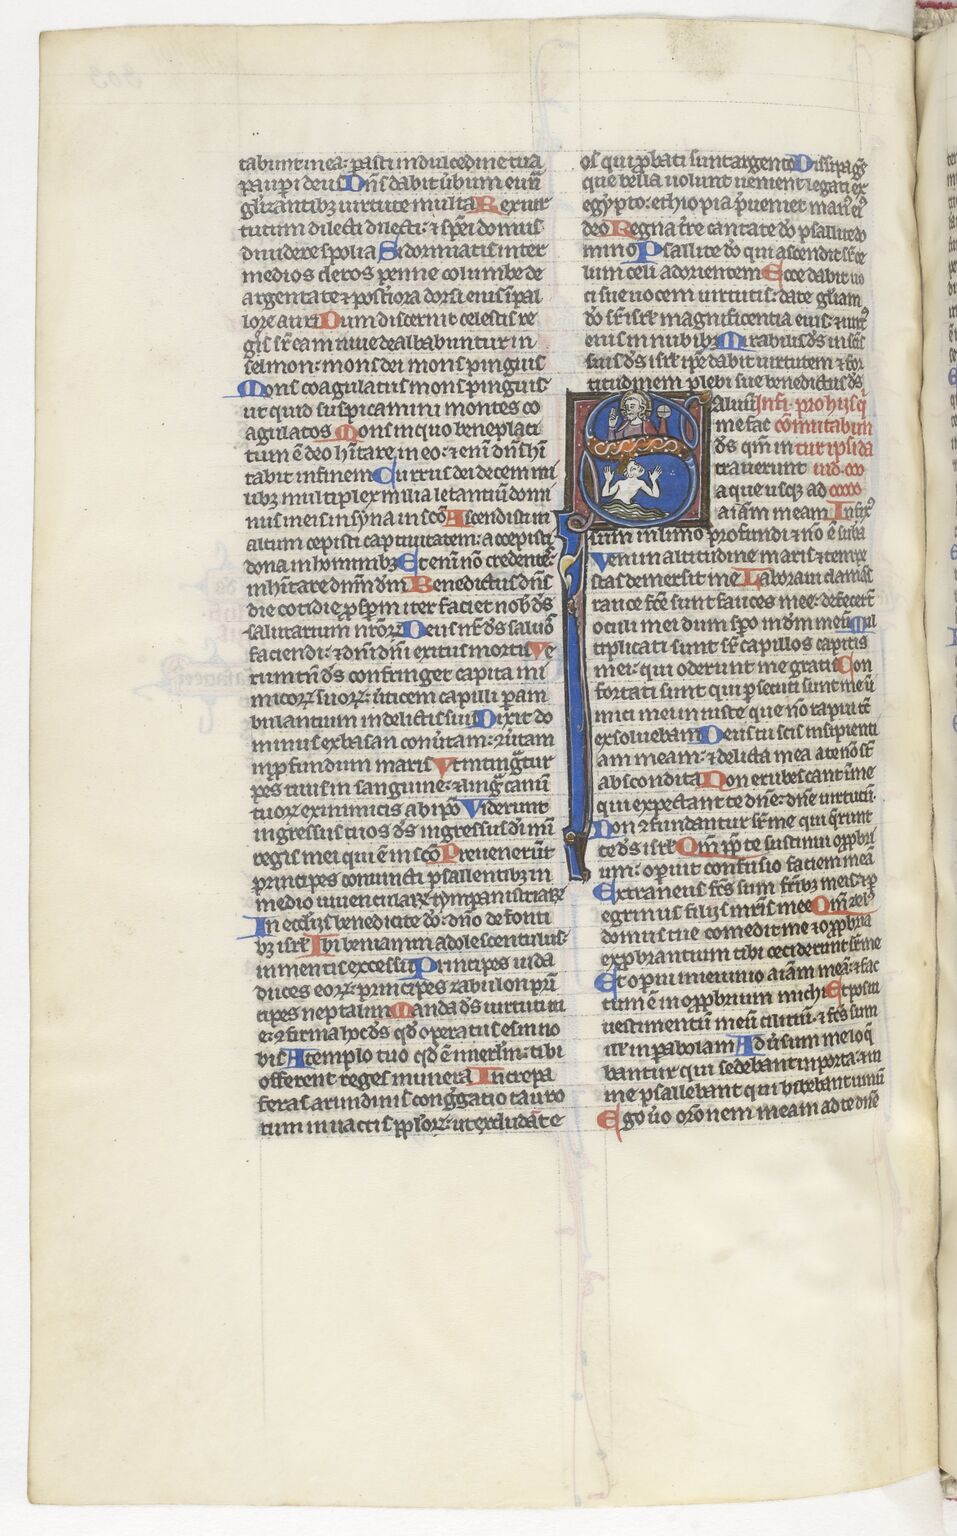 tabunt in ea: parasti in dulcedine tua
paupi deus Dns dabit ubum euñ
glizantibz uirtute multa Rex uir
tutum dilecti dilecti: ⁊ spei domus
diuidere spolia Si dormiatis inter
medios cleros penne columbe de
argentate ⁊ posteriora dorsi eius ipal
lore auri Dum discernit celestis re
ges sr eam niue dealbabuntur in
selmon: mons dei mons pinguis
Mons coagulatus mons pinguis
ut quid suspicamini montes co
agulatos Mons in quo beneplaci
tum ē deo hitare in eo: ⁊eni dns hi
tabit in finem Currus dei decem mi
libz multiplex milia letantiū domi
nus in eis in syna in sco Ascendisti in
altum cepisti captiuitatem: accepisti
dona in hominibz Et eni no credente
inhitare dnm dm Benedictus dns
die cotidie pspm iter faciet nob ds
salutarium nror Deus nr ds saluos
faciendi: ⁊ dni dni exitus mortis Ve
rumtn ds confringet capita ini
micor suor: uticem capilli pam
bulantium in delictis suis Dixit do
minus ex basan conutam: ⁊utam
in pfundum maris Ut intingatur
pes tuus in sanguine: lingua canū
tuor ex inimicis ab ipo Viderunt
ingressus tuos ds ingressus di mi
regis mei qui ē in sco Preuenerūt
principes coniuncti psallentibz in
medio iuuencular tympanistriar
In ecclijs benedicite do: dno de fonti
bz isrl Ibi beniamin adolescentulus:
in mentis excessu Principes iuda
duces eor: principes zabulon pri
cipes neptalim Manda ds uirtuti tu
e: ⁊firma hoc ds qd operatus es in no
bis A templo tuo qd ē in ierlm: tibi
offerent reges munera Increpa
feras arundinis congregatio tauro
rum in uaccis pplor: ut excludāt e
os qui pbati sunt argento Dissipa ge
tes que bella uolunt uenient legati ex
egypto: ethiopia pueniet man ei
deo Regna tre cantate do psallite do
mino Psallite do qui ascendit sr ce
lum celi ad orientem Ecce dabit uo
ci sue uocem uirtutis: date gliam
do sr isrl magnificentia eius: ⁊uirt
eius in nubibz Mirabilis ds in scis
suis ds isrl ipe dabit uirtutem ⁊ for
titudinem plebi sue benedictus ds
Saluū In fi. pro hijs q
me fac comutabun
ds qm in tur ipsi da
trauerunt uid
aque usqz ad
aiam meam Infix
sum in limo profundi ⁊ no ē suba
Veni in altitudine maris ⁊ tempe
stas demersit me Laboraui clamās
rauce fce sunt fauces mee: defecert
oculi mei dum spo in dm meū Mul
tiplicati sunt sr capillos capitis
mei: qui oderunt me gratis Con
fortati sunt qui psecuti sunt me ini
mici mei iniuste que no rapui tc
exsoluebam Deus tu scis insipienti
am meam: ⁊ delicta mea a te no st
abscondita Non erubescant i me
qui expectant te dne: dne uirtutū
Non ⁊fundantur sr me qui querunt
te ds isrl Qm ppt te sustinui oppbri
um: operuit confusio faciem meā
Extraneus fcs sum fribz meis: ⁊ pe
egrinus filijs mris mee Qm zelus
domus tue comedit me ⁊ oppbria
expbrantium tibi ceciderunt sr me
Et operui in ieiunio aiam meā: ⁊ fac
tum ē in opprobrium michi Et posui
uestimentū meū ciliciū: ⁊ fcs sum
illis in parabolam Aduersum me loq
bantur qui sedebant in porta: ⁊ in
me psallebant qui bibebant uinū
Ego uero oronem meam ad te dne